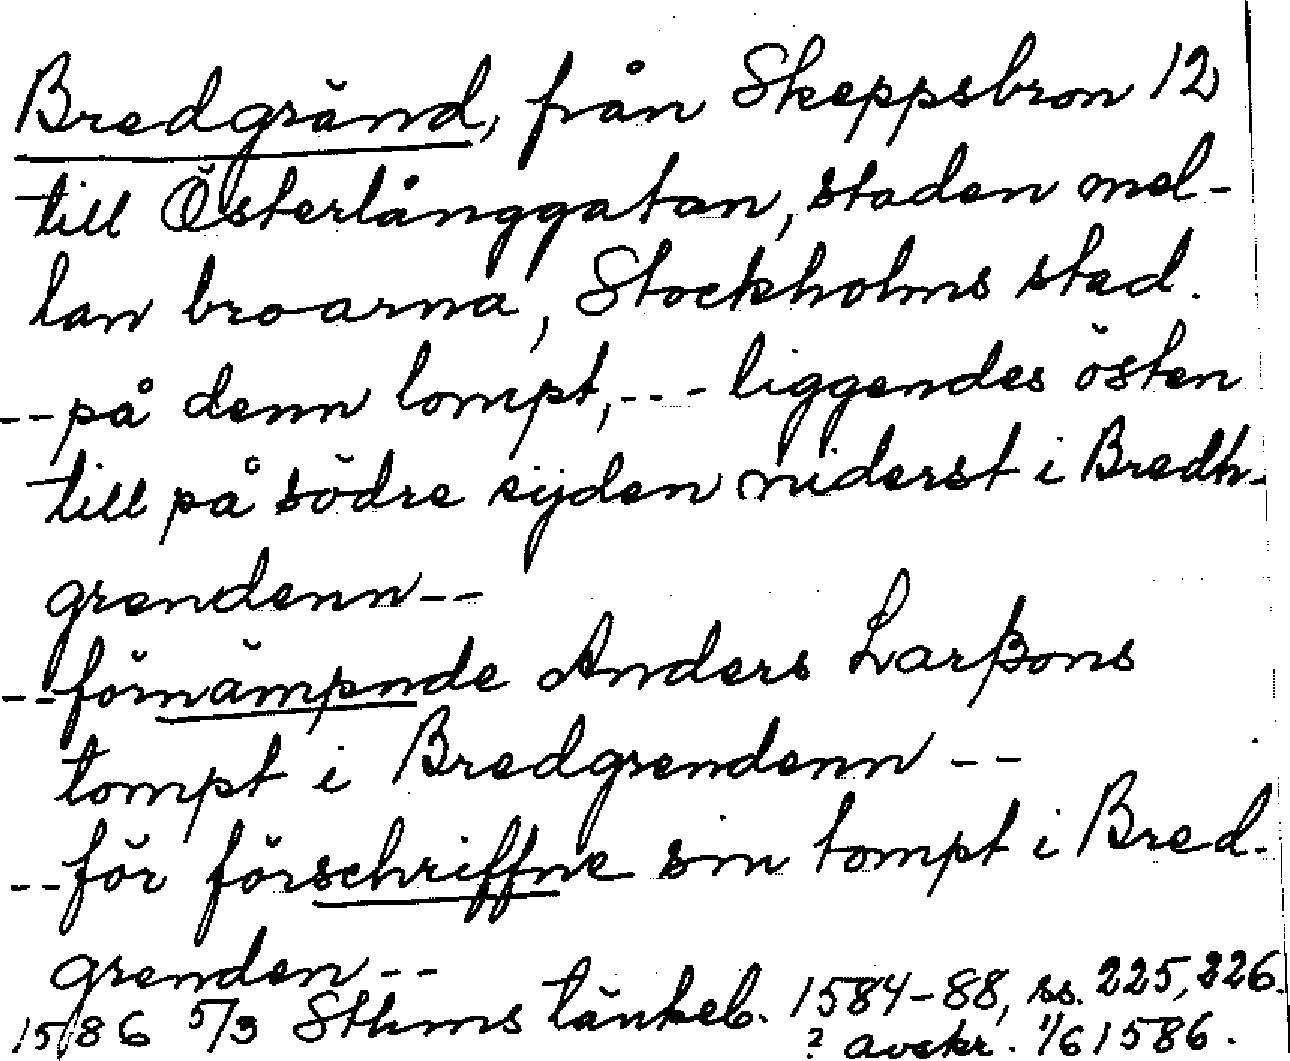 Bredgränd, från Skeppsbron 12
till Österlånggatan, staden mel-
lan broarna, Stockholms stad.
--på denn tompt,--- liggendes östen
till på södre sijden niderst i Bredh-
grendenn--
--förnämpnde Anders Larßons
tompt i Bredgrendenn--
--för förschriffne sin tompt i Bred-
grenden--
1586 5/3 Sthms tänkeb. 1584-88, ss. 225, 226.
? avskr. 1/6 1586.